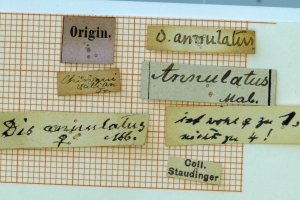 Origin.
O. annulatus
Chiriqui
Annulatus
Mab.
Dis annulatus
♀ Mb.
ist wohl ♀ zu 1,
nicht zu 4!
Coll.
Staudinger